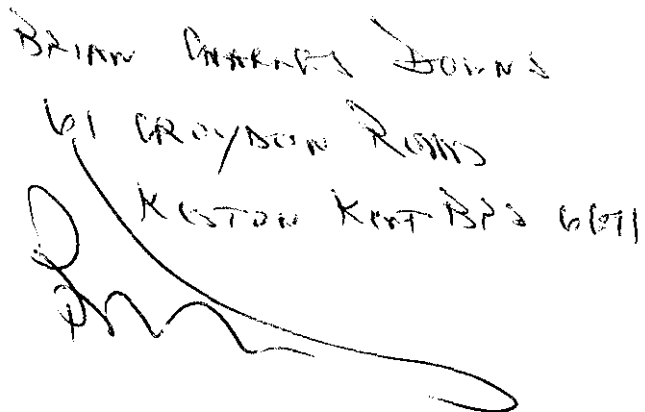 BRIAN CHARLES DOWNS
61 CROYDON ROAD
KESTON KENT BR2